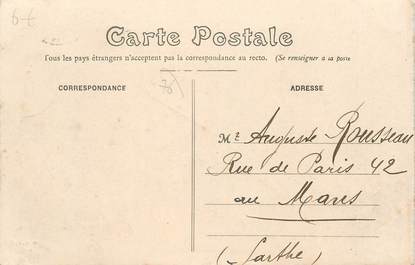 6€
Carte Postale
Tous les pays étrangers n'acceptent pas la correspondance au recto. (Se renseigner à la poste
CORRESPONDANCE
ADRESSE
Mr Auguste Rousseau
Rue de Paris 42
au Mans
(Sarthe)